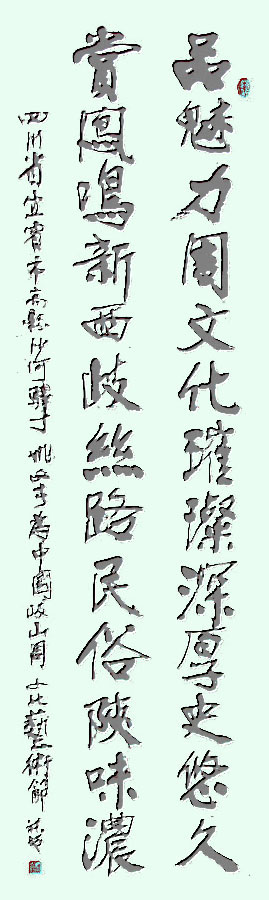 品魅力周文化璀璨深厚史悠久
賞鳳鳴新西岐絲路民俗陝味濃
四川省宜賓市高縣沙河驛 為中國岐山周文化藝術節